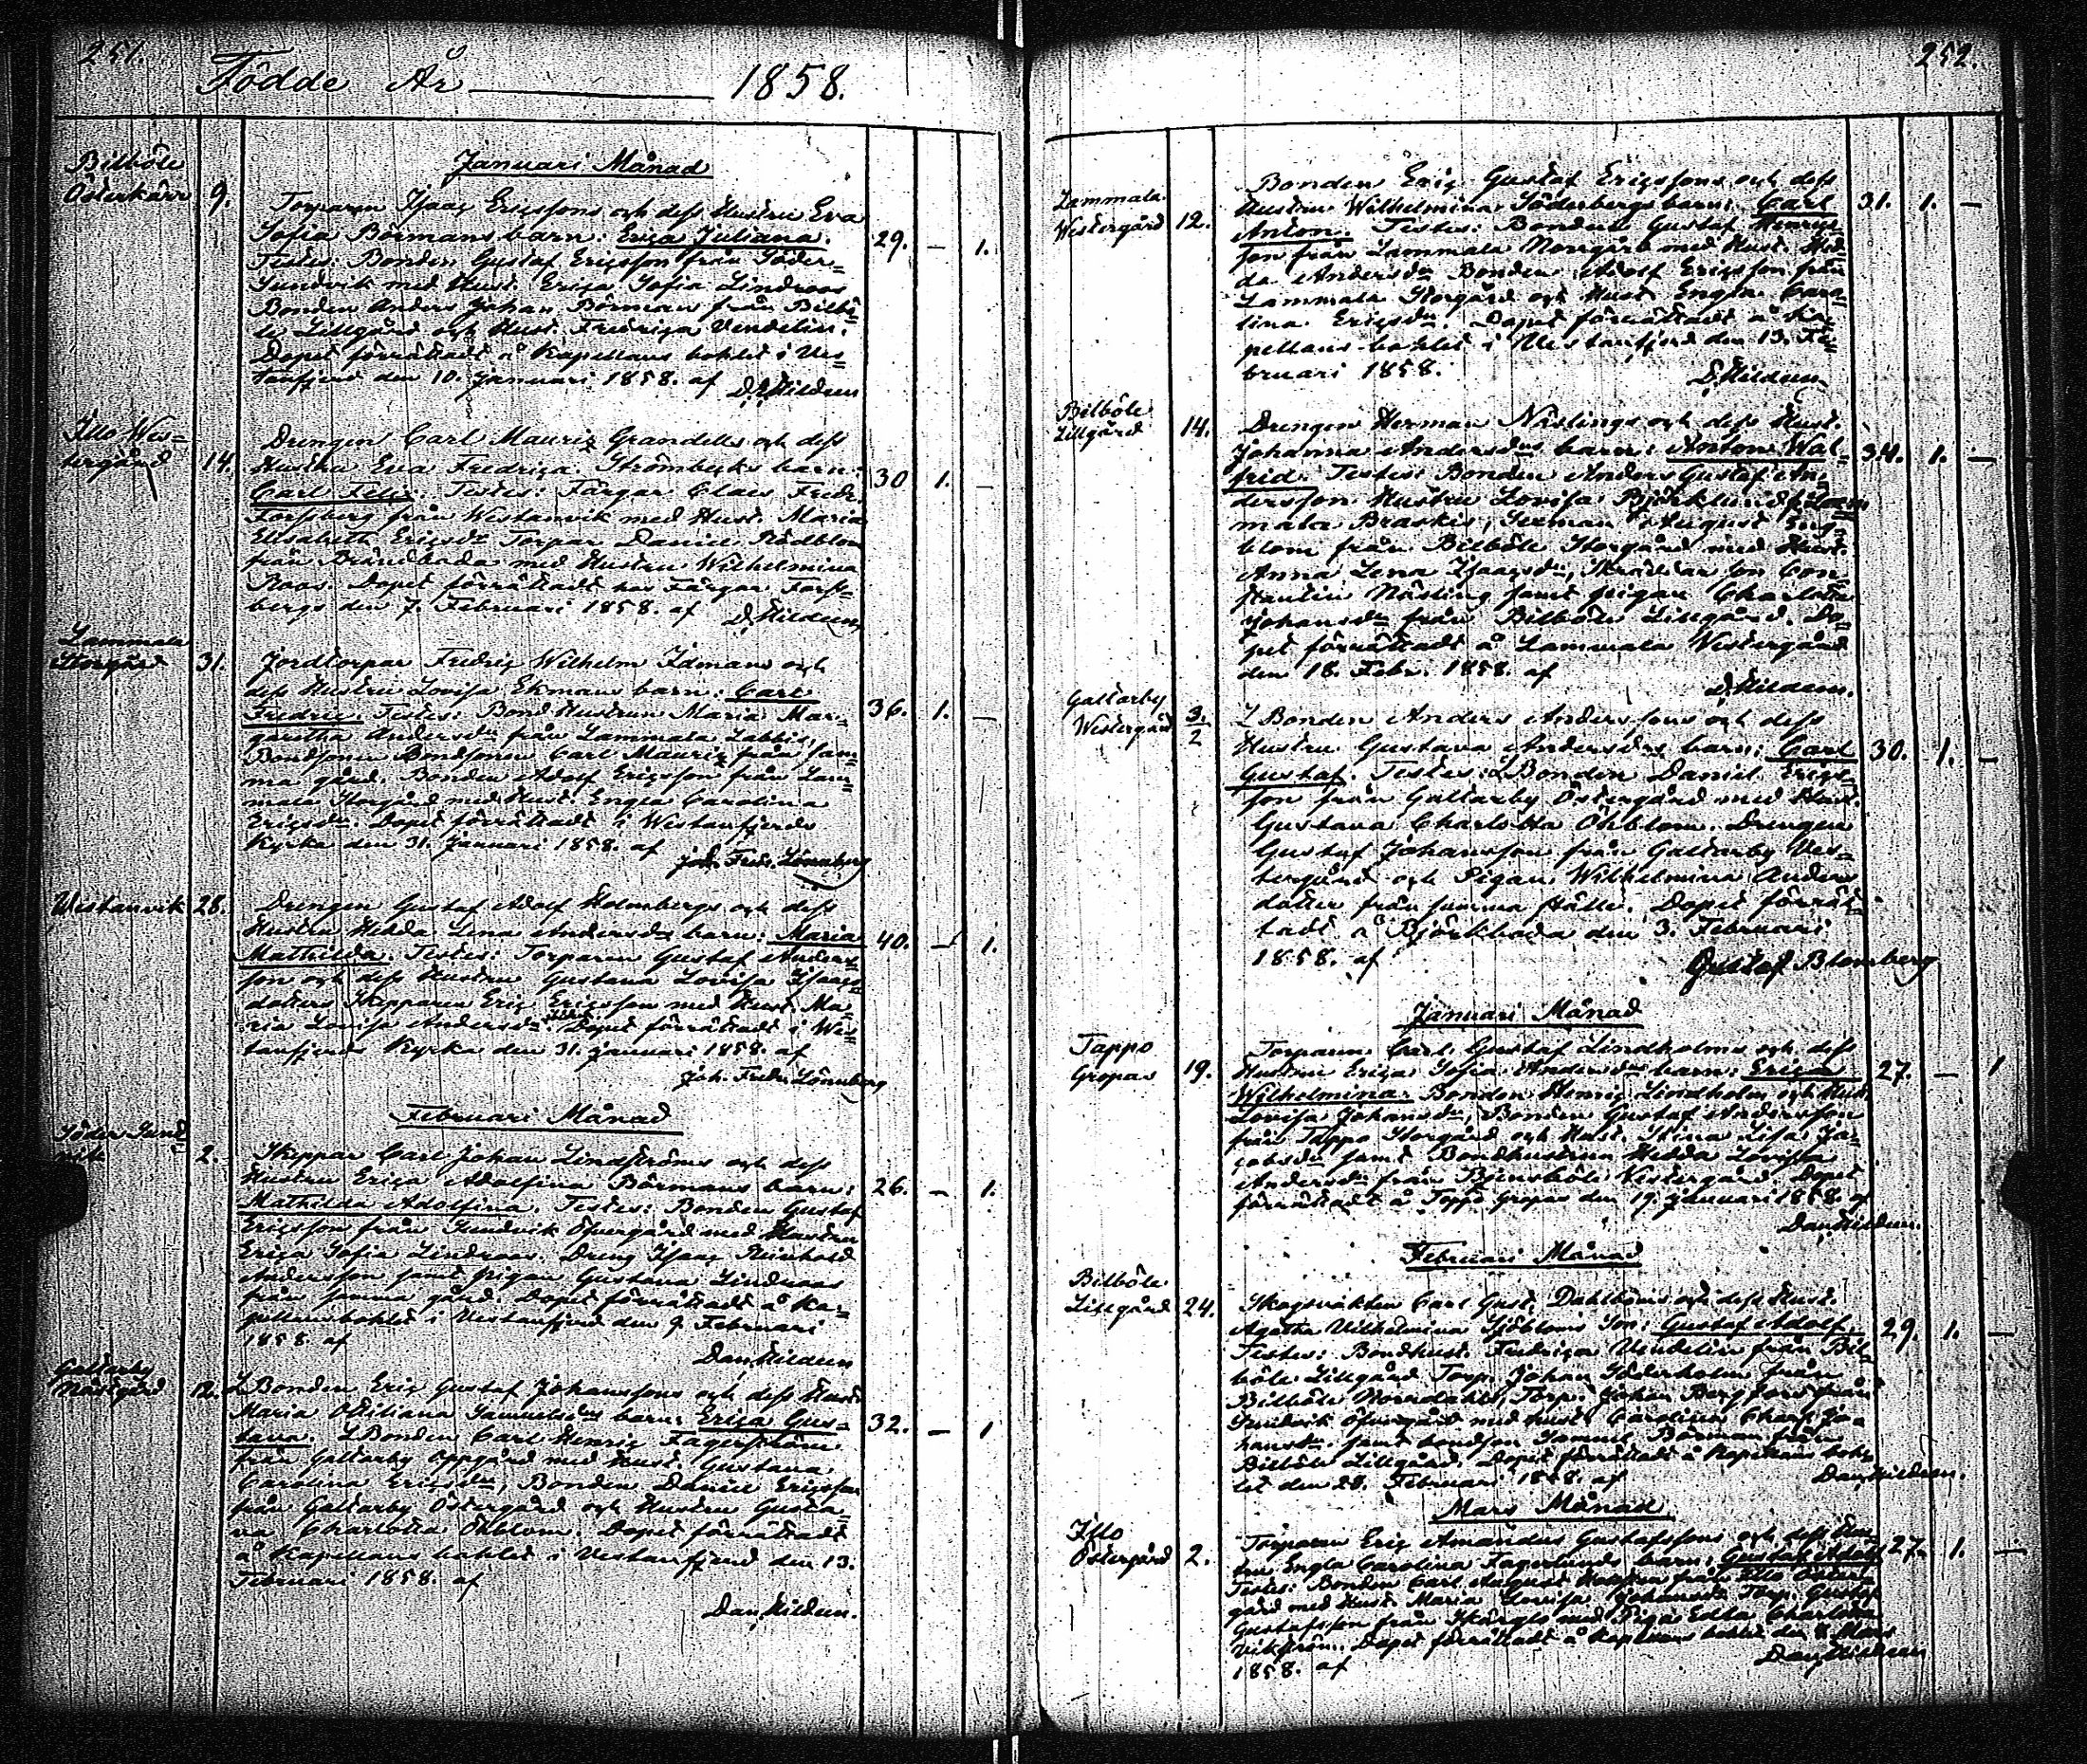 251.
Födde År 1858.
Januari Månad
Bilböle
Österkärr 9.
Torparen Isaac Ericssons och dess Hustru Eva
Sofia Börmans barn: Erica Juliana. 29. — 1.
Testes: Bonden Gustaf Ericsson från Söder=
Sundvik med Hust. Erica Sofia Lindroos
Bonden Anders Johan Börman från Bilbö=
le Lillgård och Hust. Fredrica Vendelin.
Dopet förrättadt å Kapellans bohlet i Ves=
tanfjerd den 10. Januari 1858. af D. Hildeen
Illo Wes=
tergård 14.
Drengen Carl Mauriz Grandells och dess
Hustru Eva Fredrica Strömbecks barn: 30 1. —
Carl Felix. Testes: Färgar Claes Fredr.
Forssberg från Westanvik med Hust. Maria
Elisabeth Ericsdr Torpar Daniel Rödblom
från Brändboda med Hustru Wilhelmina
Roos. Dopet förrättadt hos Färgar Forss=
bergs den 7. Februari 1858. af D. Hildeen
Lammala
Storgård 31.
Jordtorpar Fredric Wilhelm Idmans och
dess Hustru Lovisa Ekmans barn: Carl 36. 1. —
Fredric. Testes: Bond Hustrun Maria Mar=
garetha Andersdr från Lammala Labbis,
Bondsonen Bondsonen Carl Mauriz från sam=
ma gård. Bonden Adolf Ericsson från Lam=
mala Storgård med Hust. Engla Carolina
Ericsdr. Dopet förrättadt i Westanfjerds
Kyrka den 31. Januari 1858. af
Joh. Fredr. Lönnberg
Westanvik 28.
Drengen Gustaf Adolf Holmbergs och dess
Hustru Hedda Lena Andersdrs barn: Maria 40. — 1.
Mathilda. Testes: Torparen Gustaf Anders=
son och dess Hustru Gustava Lovisa Isaacs=
dotters Skepparen Eric Ericsson med Hust. Ma=
ria Lovisa Andersdr. Dopet förrättadt i Wes=
tanfjerds Kyrka den 31. Januari 1858. af
Joh. Fredr. Lönnberg
Februari Månad
Söder Sund=
vik 2.
Skeppar Carl Johan Lindströms och dess
Hustru Erica Adolfina Börmans barn: 26. — 1.
Mathilda Adolfina. Testes: Bonden Gustaf
Ericsson från Sundvik Öfvergård med Hustru
Erica Sofia Lindroos. Dreng Isaac Reinhold
Andersson samt pigan Gustava Lindroos
från samma gård. Dopet förrättadt å Ka=
pellansbohlet i Vestanfjerd den 9. Februari
1858. af
Dan. Hildeen
Galtarby
Nästgård 12.
L Bonden Eric Gustaf Johanssons och dess Hust.
Maria Ottiliana Samuelsdrs barn: Erica Gus= 32. — 1
tava. L Bonden Carl Henric Fagerström
från Galtarby Oppgård med Hust. Gustava
Carolina Ericsdr, Bonden Daniel Ericsson
från Galtarby Östergård och Hustru Gusta=
va Charlotta Öhblom. Dopet förrättadt
å Kapellans bohlet i Vestanfjerd den 13.
Februari 1858. af
Dan. Hildeen.
252.
Lammala
Westergård 12.
Bonden Eric Gustaf Ericssons och dess
Hustru Wilhelmina Söderbergs barn: Carl 31. 1. —
Anton. Testes: Bonden Gustaf Henrics=
son från Lammala Norrgård med Hust. Hed=
da Andersdr Bonden Adolf Ericsson från
Lammala Storgård och Hust. Engla Caro=
lina Ericsdr. Dopet förrättadt å Ka=
pellans-bohlet i Westanfjerd den 13. Fe=
bruari 1858.
D. Hildeen
Bilböle
Lillgård 14.
Drengen Herman Näslings och dess Hust.
Johanna Andersdrs barn: Anton Wal= 34. 1. —
frid. Testes: Bonden Anders Gustaf An=
dersson Hustru Lovisa Björklund fr. Lam=
mala Braskis, Sexman August Eng=
blom från Bilböle Storgård med Hust.
Anna Lena Isaacsdr, Skräddar son Con=
stantin Näsling samt pigan Charlotta
Johansdr från Bilböle Lillgård. Do=
pet förrättadt å Lammala Westergård
den 18. Febr. 1858. af
D. Hildeen.
Galtarby
Westergård 3/2
L Bonden Anders Anderssons och dess
Hustru Gustava Andersdrs barn: Carl 30. 1. —
Gustaf. Testes: L Bonden Daniel Erics=
son från Galtarby Östergård med Hust.
Gustava Charlotta Öhblom. Drengen
Gustaf Johansson från Galtarby Ves=
tergård och Pigan Wilhelmina Anders
dotter från samma ställe. Dopet förrät=
tadt å Björkboda den 3. Februari
1858. af
Gustaf Blomberg
Januari Månad
Tappo
Gropas 19.
Torparen Carl Gustaf Lindholms och dess
Hustru Erica Sofia Andersdrs barn: Erica 27. — 1
Wilhelmina. Bonden Henric Lindholm och Hust.
Lovisa Johansdr, Bonden Gustaf Andersson
från Tappo Storgård och Hust. Stina Lisa Ja=
cobsdr samt Bondhustrun Hedda Lovisa
Andersdr från Bjensböle Westergård. Dopet
förrättadt å Tappo Gropas den 19. Januari 1858. af
Dan. Hildeen.
Februari Månad
Bilböle
Lillgård 24.
Skogsväkten Carl Gust. Dahlbloms och dess Hust.
Agatha Wilhelmina Sjöbloms Son: Gustaf Adolf. 29. 1. —
Testes: Bondhust. Fredrica Vendelin från Bil=
böle Lillgård Torp. Johan Söderholm från
Bilböle Norrdahl, Torp. Johan Bergfors från
Sundvik Öfvergård med hust. Carolina Charl. Jo=
hansdr. samt bondson Samuel Börman från
Bilböle Lillgård. Dopet förrättadt å Kapellans boh=
let den 28. Februari 1858. af Dan. Hildeen.
Mars Månad
Illo
Östergård 2.
Torparen Eric Amandus Gustafssons och dess Hus=
tru Engla Carolina Fagerlunds barn: Gustaf Adolf 27. 1. —
Testes: Bonden Carl August från Illo Öster=
gård med Hust. Maria Lovisa Johansdr Torp. Gustaf
Gustafsson från med Piga Edla Charlotta
Vikström. Dopet förrättadt å Kapellans bohlet den 8. Mars
1858. af Dan. Hildeen